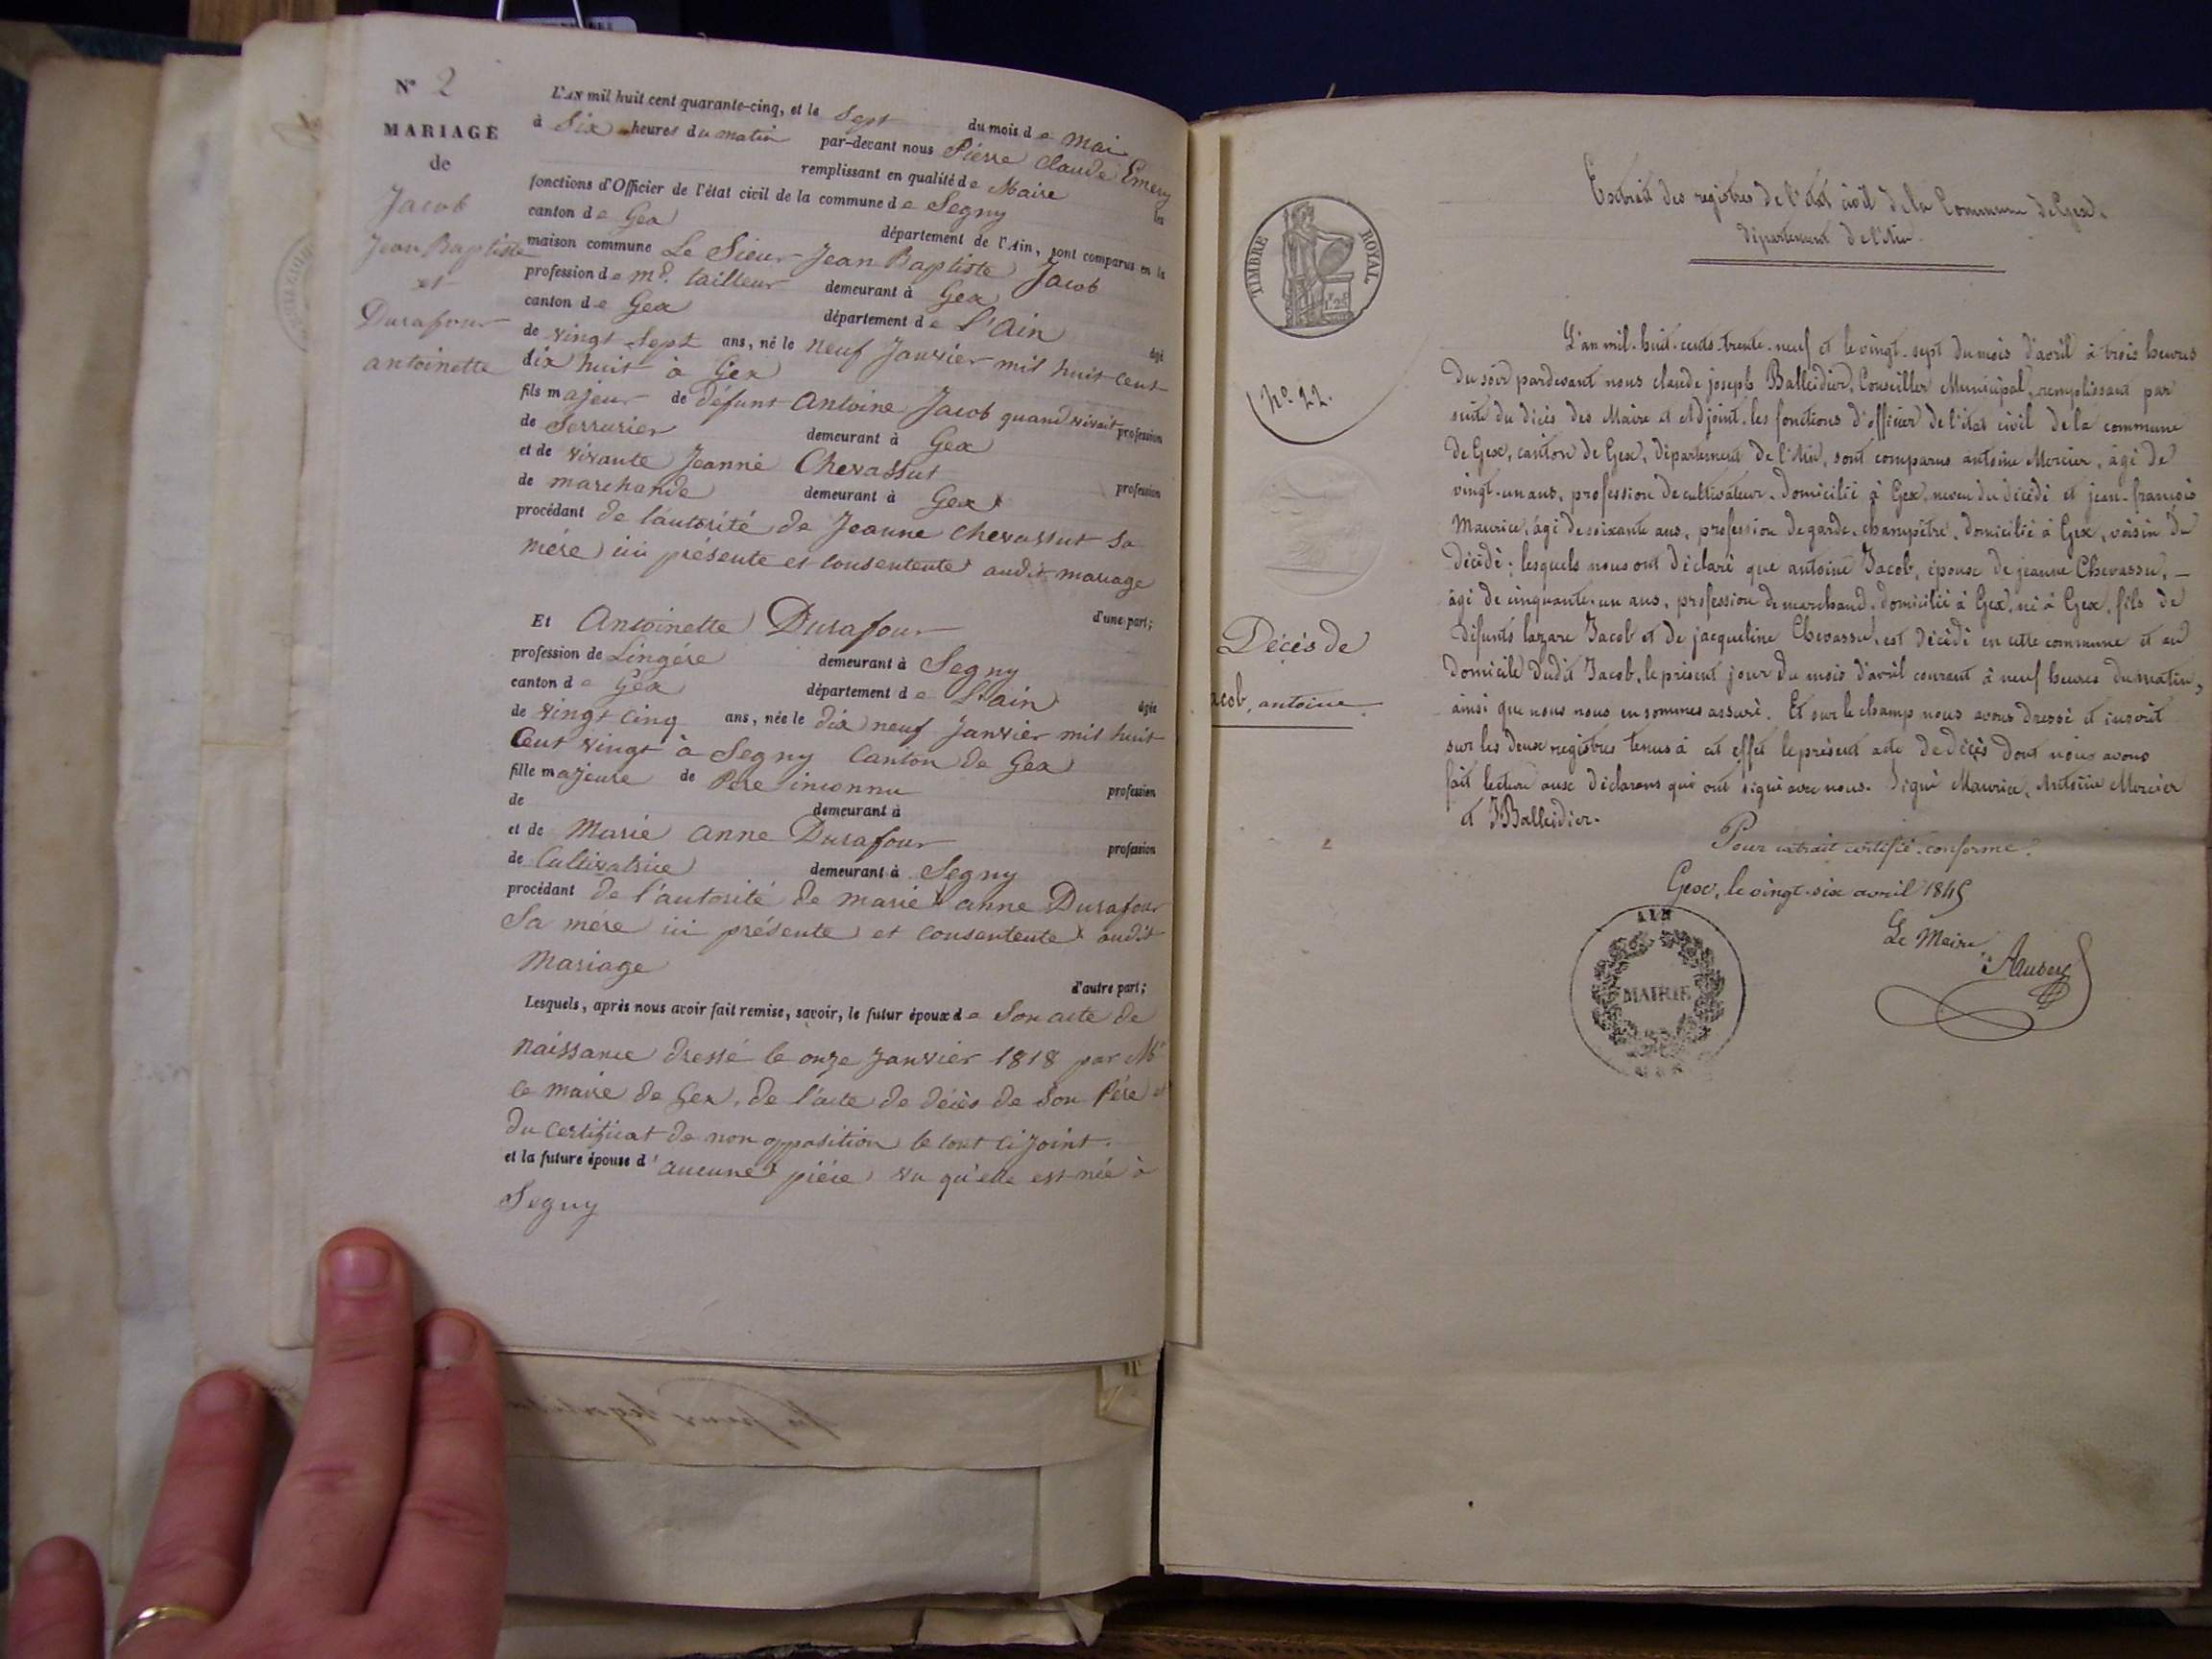 N° 2
MARIAGE
de
Jacob
Jean Baptiste
et
Durafour
antoinette
L'AN mil huit cent quarante-cinq, et le Sept du mois de Mai
à Six heures du matin par-devant nous Pierre Claude Emery
remplissant en qualité de Maire les
fonctions d'Officier de l'état civil de la commune de Segny
canton de Gex département de l'Ain, sont comparus en la
maison commune Le Sieur Jean Baptiste Jacob
profession de md. tailleur demeurant à Gex
canton de Gex département de L'Ain âgé
de vingt Sept ans, né le neuf Janvier mil huit Cent
dix huit à Gex
fils majeur de défunt Antoine Jacob quand vivait profession
de Serrurier demeurant à Gex
et de vivante Jeanne Chevassut profession
de marchande demeurant à Gex
procédant de l'autorité de Jeanne Chevassut Sa
mère ici présente et consentente audit mariage
d'une part;
Et Antoinette Durafour
profession de Lingére demeurant à Segny
canton de Gex département de L'ain âgée
de vingt cinq ans, née le dix neuf Janvier mil huit
Cent vingt à Segny Canton de Gex
fille majeure de Père inconnu profession
de demeurant à
et de Marie anne Durafour profession
de Cultivatrice demeurant à Segny
procédant de l'autorité de marie anne Durafour
Sa mére ici présente et consentente audit
Mariage
d'autre part;
Lesquels, après nous avoir fait remise, savoir, le futur époux de Son acte de
Naissance dressé le onze Janvier 1818 par Mr
le maire de Gex, de l'acte de décès de Son Père et
du certificat de non opposition le tout ci joint.
et la future épouse d'aucune pièce vu qu'elle est née à
Segny
TIMBRE ROYAL
N°. 22.
Décès de
acob, antoine
Extrait des registres de l'état civil de la Commune de Gex.
département de l'Ain.
L'an mil-huit-cents-trente-neuf et le vingt-sept du mois d'avril à trois heures
du soir pardevant nous claude joseph Balleidier, Conseiller Municipal, remplissant par
suite du décès des Maire et Adjoint les fonctions d'officier de l'état civil de la commune
de Gex, canton de Gex, département de l'Ain, sont comparus antoine Mercier, âgé de
vingt-un ans, profession de cultivateur, domicilié à Gex, neveu du décédé et jean-françois
Maurice, âgé de soixante ans, profession de garde-champêtre, domicilié à Gex, voisin du
décédé; lesquels nous ont déclaré que antoine Jacob, époux de jeanne Chevassu,
âgé de cinquante-un ans, profession de marchand, domicilié à Gex, né à Gex, fils de
défunts lazare Jacob et de jacqueline Chevassu, est décédé en cette commune et au
domicile dudit Jacob, le présent jour du mois d'avril courant à neuf heures du matin,
ainsi que nous nous en sommes assuré. Et sur le champ nous avons dressé et inscrit
sur les deux registres tenus à cet effet le présent acte de décès dont nous avons
fait lecture aux déclarans qui ont signé avec nous. Signé Maurice, Antoine Mercier
et JBalleidier.
Pour extrait certifié conforme.
Gex, le vingt-six avril 1845
Le Maire,
AIN
MAIRIE